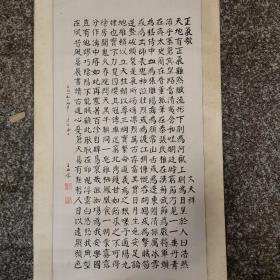 正氣歌
文天祥
天地有正氣雜然賦流形下則為河嶽上則為日星於人曰浩然
沛乎塞蒼冥皇路當清夷含和吐明庭時窮節乃見一一垂丹青
在齊太史簡在晉董狐筆在秦張良椎在漢蘇武節為嚴將軍頭
為嵇侍中血為張睢陽齒為顏常山舌或為遼東帽清操厲冰雪
或為出師表鬼神泣壯烈或為渡江楫慷慨吞胡羯或為擊賊笏
逆豎頭破裂是氣所磅礴凜烈萬古存當其貫日月生死安足論
地維賴以立天柱賴以尊三綱實繫命道義為之根嗟予遘陽九
隸也實不力楚囚纓其冠傳車送窮北鼎鑊甘如飴求之不可得
陰房闃鬼火春院閟天黑牛驥同一皂雞棲鳳凰食一朝蒙霧露
分作溝中瘠如此再寒暑百沴自辟易哀哉沮洳場為我安樂國
豈有他謬巧陰陽不能賊顧此耿耿在仰視浮雲白悠悠我心悲
蒼天曷有極哲人日已遠典刑在夙昔風簷展書讀古道照顏色